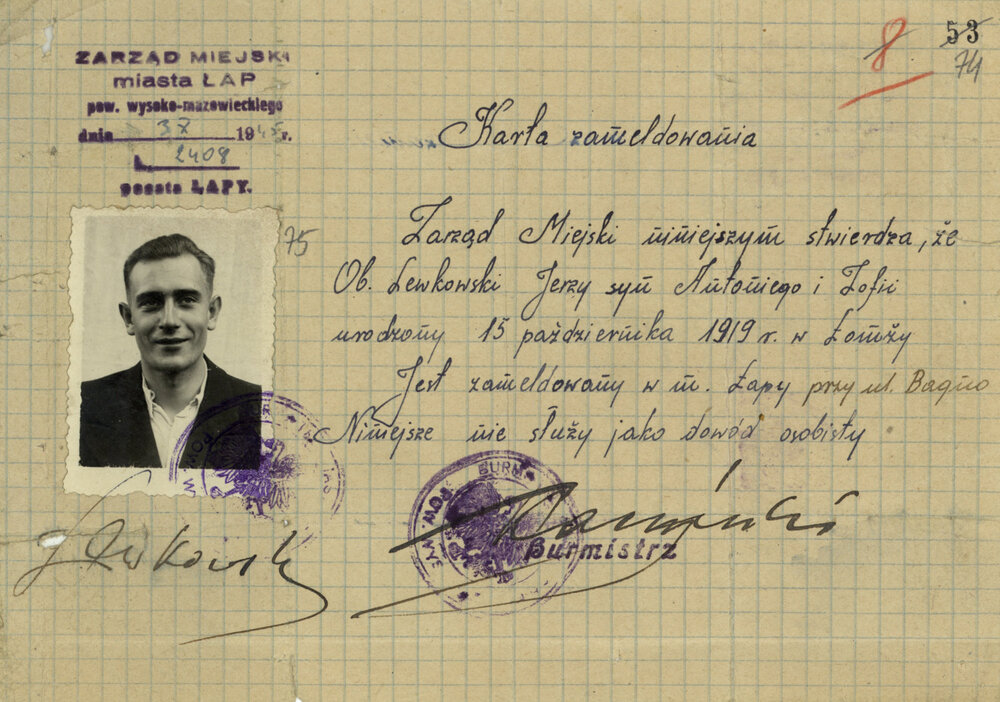 ZARZĄD MIEJSKI
miasta ŁAP
pow. wysoko-mazowieckiego
dnia 3 X 1945 r.
L 2408
poczta ŁAPY.
8
53
74
75
Karta zameldowania
Zarząd Miejski niniejszym stwierdza, że
Ob. Lewkowski Jerzy syn Antoniego i Zofii
urodzony 15 października 1919 r. w Łomży
Jest zameldowany w m. Łapy przy ul. Bagno
Niniejsze nie służy jako dowód osobisty
BURM
POW. WYS
Burmistrz
J Lewkowski